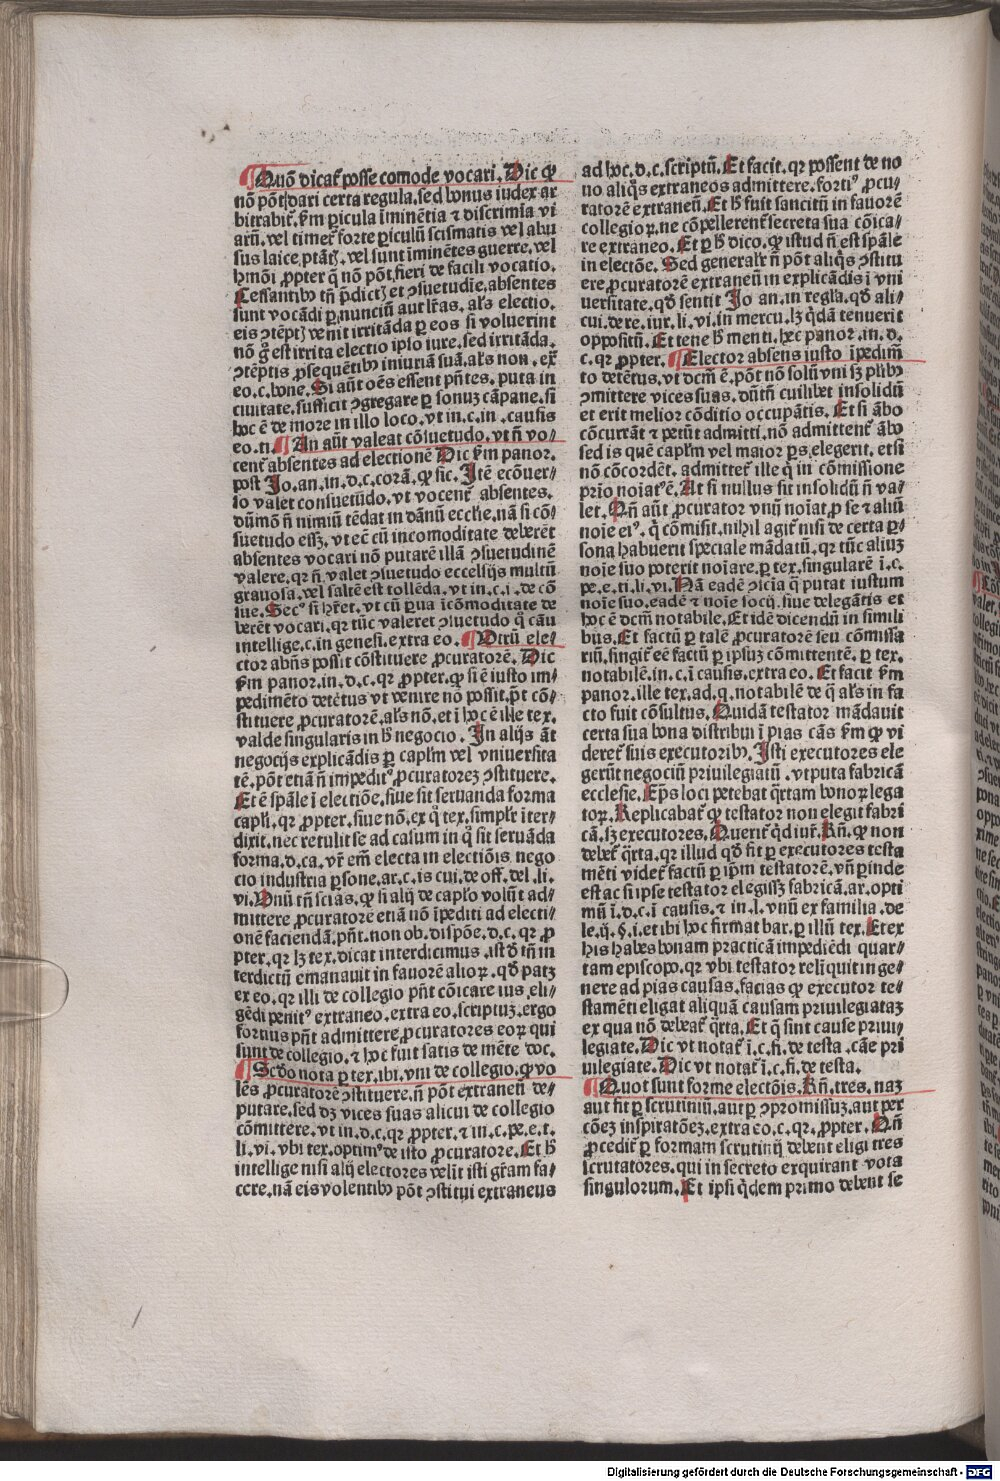 ¶ Quō dicat᷑ posse comode vocari. Dic ꝙ
nō pōt dari certa regula. sed bonus iudex ar
bitrabit᷑. ẜm ꝑicula īminētia ⁊ discrimīa vi
arū. vel timet᷑ forte ꝑiculū scismatis vel abu
sus laice ptātꝭ. vel sunt iminētes guerre. vel
hmōi ꝓpter q̄ nō pōt fieri de facili vocatio.
Cessantibꝰ tn̄ p̄dictꝭ et ꝯsuetudīe. absentes
sunt vocādi ꝑ nunciū aut lr̄as. al̓s electio.
eis ꝯtēptꝭ venit irritāda ꝑ eos si voluerint
nō g̊ est irrita electio ipso iure. sed irritāda.
ꝯtēptis ꝓsequētibꝰ iniuriā suā. al̓s non. exͣ
eo. c. bone. Si aūt oēs essent pn̄tes. puta in
ciuitate. sufficit ꝯgregare ꝑ sonuꝫ cāpane. si
hoc ē de more in illo loco. vt in. c. in. causis
eo. ti. ¶ An aūt valeat cōsuetudo. vt n̄ vo⸗
cent᷑ absentes ad electionē Dic ẜm panor.
post Jo. an. in. d. c. corā. ꝙ sic. Itē ecōuer⸗
so valet consuetudo. vt vocent᷑ absentes.
dūmō n̄ nimiū tēdat in dānū ecclie. nā si cō⸗
suetudo essꝫ. vt eē cū incomoditate deberēt
absentes vocari nō putarē illā ꝯsuetudinē
valere. qꝛ n̄ valet ꝯsuetudo ecclesijs multū
grauosa. vel saltē est tollēda. vt in. c. i. de cō
sue. Secꝰ si hr̄et. vt cū ꝑua īcōmoditate de
berēt vocari. qꝛ tūc valeret ꝯsuetudo q̄ cāu
intellige. c. in genesi. extra eo. ¶ Utrū ele⸗
ctor abn̄s possit cōstituere ꝓcuratorē. Dic
ẜm panor. in. d. c. qꝛ ꝓpter. ꝙ si ē iusto im⸗
pedimēto detētus vt venire nō possit. pōt cō⸗
stituere ꝓcuratorē. al̓s nō. et ī hoc ē ille tex.
valde singularis in hͦ negocio. In alijs āt
negocijs explicādis ꝑ capl̓m vel vniuersita
tē. pōt etiā n̄ impeditꝰ ꝓcuratoreꝫ ꝯstituere.
Et ē sp̄ale ī electiōe. siue sit seruanda forma
capl̓i. qꝛ ꝓpter. siue nō. ex q̊ tex. simpl̓r īter⸗
dixit. nec retulit se ad casum in q̊ sit seruāda
forma. d. ca. vr̄ em̄ electa in electiōis nego
cio industria ꝑsone. ar. c. is cui. de off. del. li.
vi. Unū tn̄ scias. ꝙ si alij de capl̓o volūt ad⸗
mittere ꝓcuratorē etiā nō īpediti ad electi⸗
onē faciendā. pn̄t. non ob. dispōe. d. c. qꝛ ꝓ
pter. qꝛ lꝫ tex. dicat interdicimus. ist̄d tn̄ in
terdictū emanauit in fauorē alioꝝ. qd̓ patꝫ
ex eo. qꝛ illi de collegio pn̄t cōicare ius. eli⸗
gēdi penitꝰ extraneo. extra eo. scriptuꝫ. ergo
fortius pn̄t admittere ꝓcuratores eoꝝ qui
sunt de collegio. ⁊ hoc fuit satis de mēte doc.
¶ Scd̓o nota ꝑ tex. ibi. vni de collegio. ꝙ vo
lēs ꝓcuratorē ꝯstituere. n̄ pōt extraneū de⸗
putare. sed dꝫ vices suas alicui de collegio
cōmittere. vt in. d. c. qꝛ ꝓpter. ⁊ in. c. pe. e. t.
li. vi. vbi tex. optimꝰ de isto ꝓcuratore. Et hͦ
intellige nisi alij electores velīt isti gr̄am fa⸗
cere. nā eis volentibꝰ pōt ꝯstitui extraneus
ad hoc. d. c. scriptū. Et facit. qꝛ possent de no
no aliq̊s extraneos admittere. fortiꝰ ꝓcu⸗
ratorē extraneū. Et hͦ fuit sancitū in fauorē
collegioꝝ. ne cōpellerent᷑ secreta sua cōica⸗
re extraneo. Et ꝑ hͦ dico. ꝙ istud n̄ est sp̄ale
in electōe. Sed general̓r n̄ pōt aliq̊s ꝯstitu
ere ꝓcuratorē extraneū in explicādis ī vni
uersitate. qd̓ sentit Jo an. in regl̓a. qd̓ ali⸗
cui. de re. iur. li. vi. in mercu. lꝫ q̊dā tenuerit
oppositū. Et tene hͦ menti. hec panor. in. d.
c. qꝛ ꝓpter. ¶ Elector absens iusto īpedim̄
to detētus. vt dcm̄ ē. pōt nō solū vni sꝫ plībꝰ
ꝯmittere vices suas. dūtn̄ cuilibet insolidū
et erit melior cōditio occupātis. Et si ābo
cōcurrāt ⁊ petūt admitti. nō admittent᷑ ābo
sed is quē capl̓m vel maior ꝑs elegerit. et si
nō cōcordēt. admittet᷑ ille q̊ in cōmissione
prīo noiatꝰ ē. At si nullus sit insolidū n̄ va⸗
let. Qn̄ aūt ꝓcurator vniꝰ noiat᷑ ꝑ se ⁊ aliū
noīe eiꝰ. q̊ cōmisit. nihil agit᷑ nisi de certa ꝑ⸗
sona habuerit speciale mādatū. qꝛ tūc aliuꝫ
noīe suo poterit noīare. ꝑ tex. singularē ī. c.
pe. e. ti. li. vi. Nā eadē ꝯscīa q̊ putat iustum
noīe suo. eadē ⁊ noīe socij. siue delegātis et
hoc ē dcm̄ notabile. Et idē dicendū in simili
bus. Et factū ꝑ talē ꝓcuratorē seu cōmissa
riū. fingit᷑ eē factū ꝑ ipsuꝫ cōmittentē. ꝑ tex.
notabilē. in. c. ī causis. extra eo. Et facit ẜm
panor. ille tex. ad. q. notabilē de q̊ al̓s in fa
cto fuit cōsultus. Quidā testator mādauit
certa sua bona distribui ī pias cās ẜm ꝙ vi
deret᷑ suis executoribꝰ. Isti executores ele
gerūt negociū priuilegiatū. vtputa fabricā
ecclesie. Ep̄s loci petebat q̄rtam bonoꝝ lega
toꝝ. Replicabat᷑ ꝙ testator non elegit fabri
cā. sꝫ executores. Querit᷑ qͥd iur̄. Rn̄. ꝙ non
debet᷑ q̄rta. qꝛ illud qd̓ fit ꝑ executores testa
mēti videt᷑ factū ꝑ ip̄m testatorē. vn̄ perinde
est ac si ipse testator elegissꝫ fabricā. ar. opti
mū ī. d. c. ī causis. ⁊ in. l. vnū ex familia. de
le. ij. §. i. et ibi hoc firmat bar. ꝑ illū tex. Et ex
his habes bonam practicā impediēdi quar⸗
tam episcopo. qꝛ vbi testator relīquit in ge⸗
nere ad pias causas. facias ꝙ executor te⸗
stamēti eligat aliquā causam priuilegiataꝫ
ex qua nō debeat᷑ q̄rta. Et q̄ sint cause priui⸗
legiate. Dic vt notat᷑ ī. c. fi. de testa. cāe pri
uilegiate. Dic vt notat᷑ ī. c. fi. de testa.
¶ Quot sunt forme electōis. Rn̄. tres. naꝫ
aut fit ꝑ scrutiniū. aut ꝑ ꝯpromissuꝫ. aut per
cōeꝫ inspiratōeꝫ. extra eo. c. qꝛ. ꝓpter. Qn̄
ꝓcedit᷑ ꝑ formam scrutinij debent eligi tres
scrutatores. qui in secreto exquirant vota
singulorum. Et ipsi q̊dem primo debent se
Digitalisierung gefördert durch die Deutsche Forschungsgemeinschaft - DFG